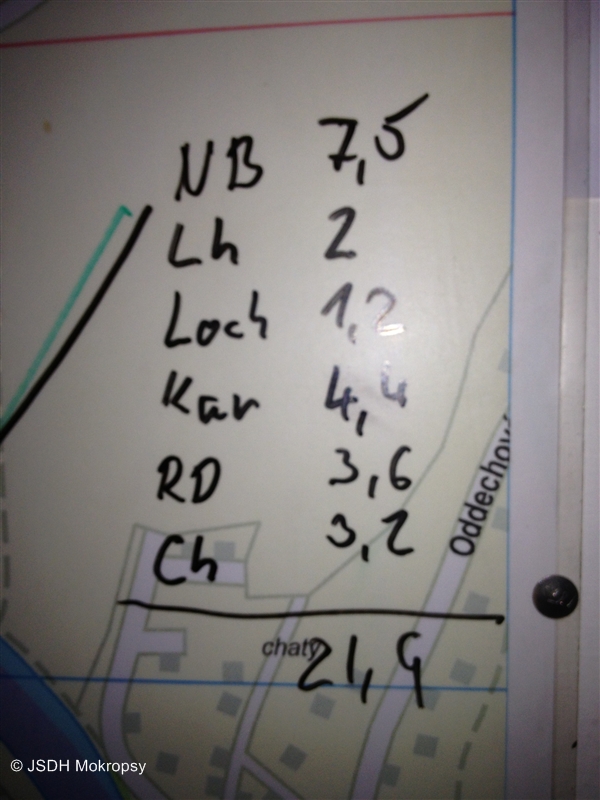 NB 7,5
Lh 2
Loch 1,2
Kar 4,4
RD 3,6
Ch 3,2
chaty
21,9
© JSDH Mokropsy